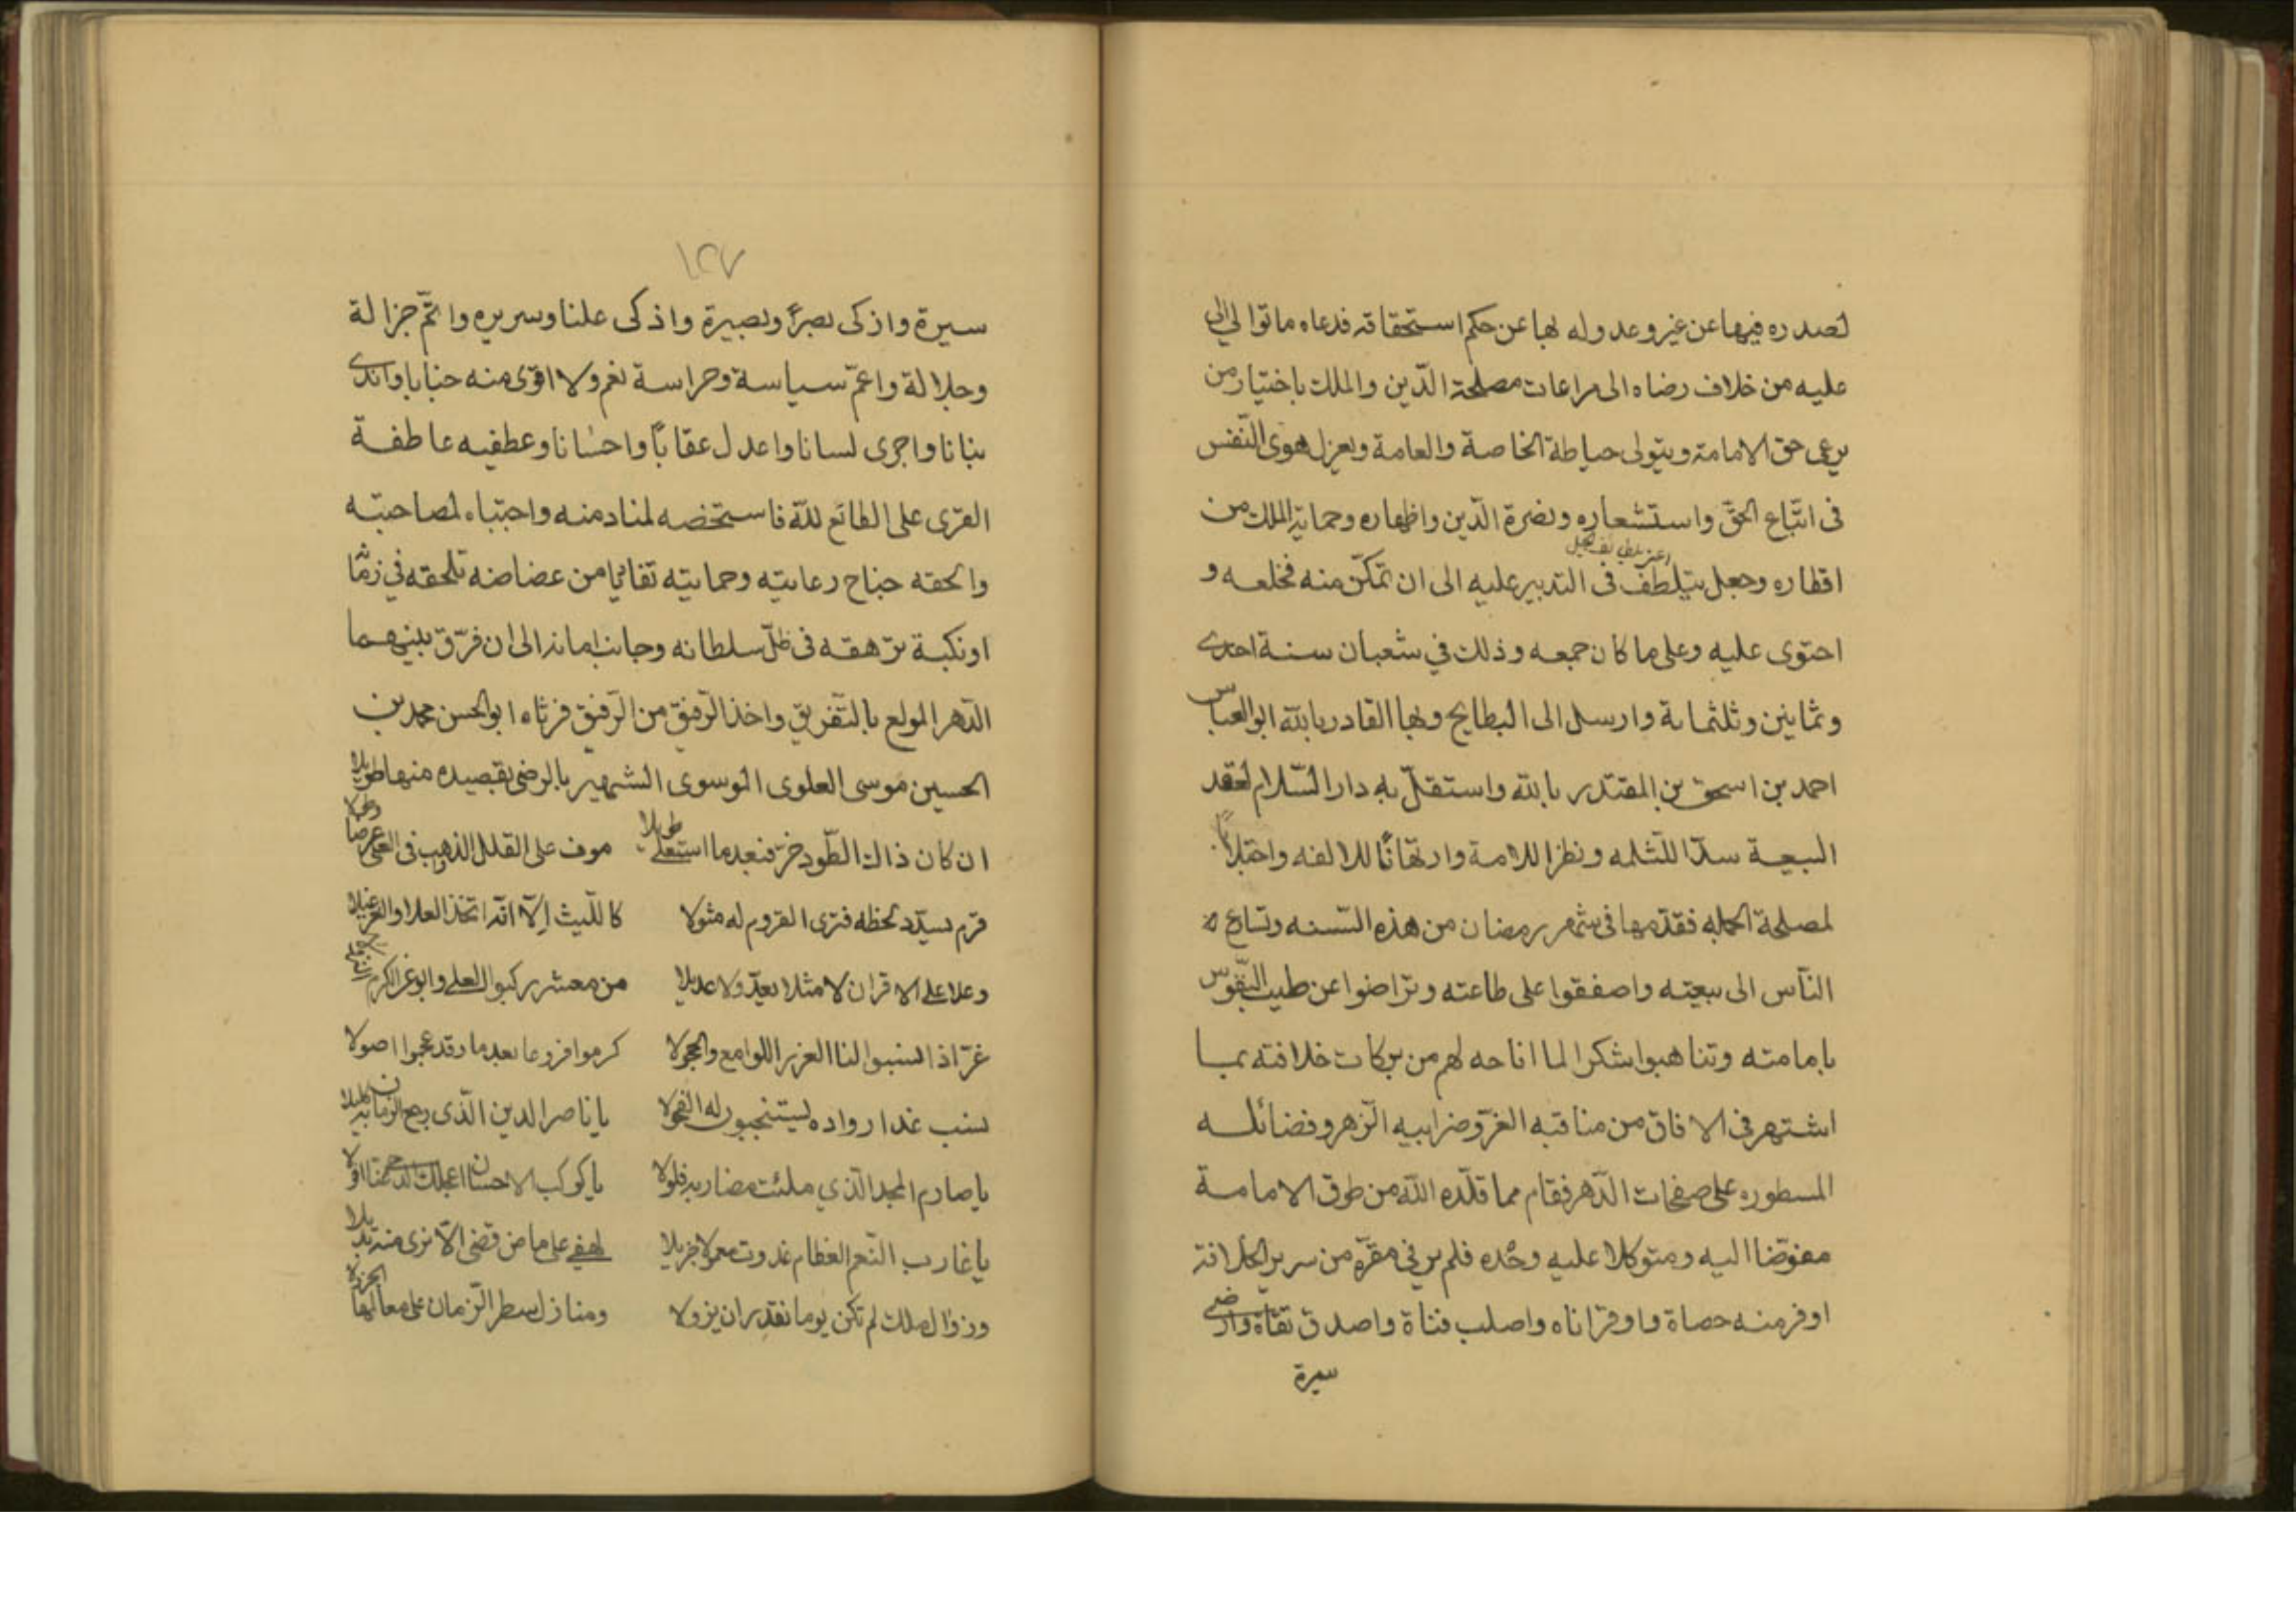 لصدره فيها عن غير وعدوله بها عن حكم استحقاقه فدعاه ما توالى
عليه من خلاف رضاه الى مراعات مصلحة الدّين والملك باختيار من
يرعى حق الامامة ويتولى حياطة الخاصة والعامة ويعزل هوى النّفس
فى اتّباع الحقّ واستشعاره ونصرة الدّين واظهاره وحماية الملك من
اقطاره وجعل يتلطّف فى التدبير عليه الى ان تمكّن منه فخلعه و
احتوى عليه وعلى ما كان جمعه وذلك في شعبان سنة احدى
وثمانين وثلثماية وارسل الى البطايح وبها القادر بالله ابو العباس
احمد بن اسحق بن المقتدر بالله واستقلّ به دار السّلام لعقد
البيعة سدّا للثّلمه ونظرا للامة وارتهانًا للالفه واحتلابًا
لمصلحة الجمله فقدّمها فى شهر رمضان من هذه السّنه وتسارع
النّاس الى بيعته واصفقوا على طاعته وتراضوا عن طيب النّفوس
بامامته وتناهبوا شكرا لما اتاحه لهم من بركات خلافته بما
اشتهر فى الافاق من مناقبه الغرّ وضرايبه الزّهر وفضائله
المسطوره على صفحات الدّهر فقام مما قلّده الله من طوق الامامة
مفوّضا اليه ومتوكلا عليه وحْده فلم ير في مقرّه من سرير الخلافة
اوفر منه حصاة واوقر اناه واصلب قناة واصدق تقاة وارضى
سيرة
١٢٧
سيرة واذكى بصرًا وبصيرة واذكى علنا وسريره واتمّ جزالة
وجلالة واعمّ سياسة وحراسة نعم ولا اقوى منه جنابا واندى
بنانا واجرى لسانا واعدل عقابًا واحسانا وعطفيه عاطفة
القرى على الطائع لله فاستخصه لمنادمنه واجتباه لصاحبته
والحقه جناح رعايته وحمايته تفاديا من غضاضة تلحقه في زمّا
او نكبة ترهقه فى ظلّ سلطانه وجانب امانه الى ان فرّق بينهما
الدّهر المولع بالتّفريق واخذ الرّفيق من الرّفيق فرثاه ابو الحسن محمد بن
الحسين موسى العلوى الموسوى الشهير بالرضى بقصيده منها طويلا
ان كان ذاك الطّود خرّ فبعد ما استعلى طويلا موف على القلل الذهب فى العلى عرضا وطولا
قرم يسدّد لحظه فترى القروم له مثولا كاللّيث الّا انّه اتخذ العلا والعز غيلا
وعلا على الاقران لا مثلا يعدّ ولا عديلا من معشر ركبوا العلى وابو عن الكرم
غرّ اذا انسبوا لنا الغرر اللوامع والحجولا كرموا فروعا بعد ما وقد عجبوا اصولا
نسب غدا رواده يستنجبون له الفحولا يا ناصر الدين الّذى رجع الزمان به كليلا
يا صارم المجد الّذي ملئت مضاربه فلولا يا كوكب الاحسان اعجلك الدجى عنّا افولا
يا غارب النّعم العظام غدوت معمولا جزيلا لهفى على ماض قضى الّا نرى منه بديلا
وزوال ملك لم تكن يوما نقدر ان يزولا ومنازل سطر الزّمان على معالمها